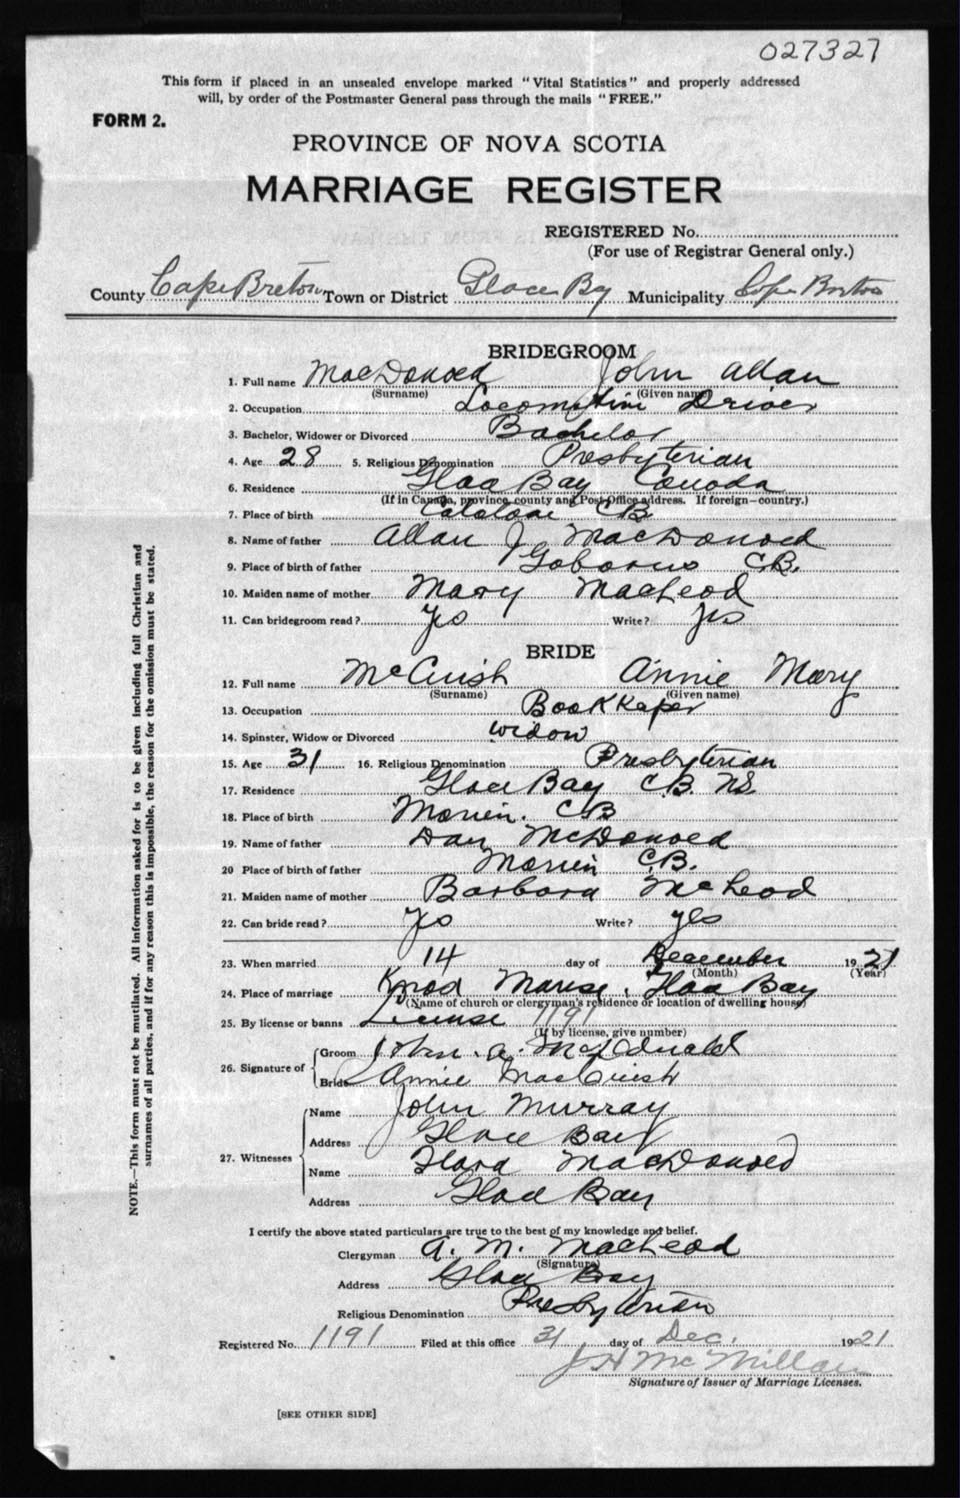 027327
This form if placed in an unsealed envelope marked "Vital Statistics" and properly addressed
will, by order of the Postmaster General pass through the mails "FREE."
FORM 2.
PROVINCE OF NOVA SCOTIA
MARRIAGE REGISTER
REGISTERED No.
(For use of Registrar General only.)
County Cape Breton Town or District Glace Bay Municipality Cape Breton
BRIDEGROOM
1. Full name MacDonald John Allan
(Surname) (Given name)
2. Occupation Locomotive Driver
3. Bachelor, Widower or Divorced Bachelor
4. Age 28 5. Religious Denomination Presbyterian
6. Residence Glace Bay Canada
(If in Canada, province, county and Post Office address. If foreign—country.)
7. Place of birth Catalone CB
8. Name of father Allan J MacDonald
9. Place of birth of father Gabarus C.B.
10. Maiden name of mother Mary MacLeod
11. Can bridegroom read? Yes Write? Yes
BRIDE
12. Full name McCuish Annie Mary
(Surname) (Given name)
13. Occupation BookKeper
14. Spinster, Widow or Divorced widow
15. Age 31 16. Religious Denomination Presbyterian
17. Residence Glace Bay C.B. N.S.
18. Place of birth Morien. CB
19. Name of father Dan McDonald
20 Place of birth of father Morien C.B.
21. Maiden name of mother Barbara McLeod
22. Can bride read? Yes Write? yes
23. When married 14 day of December 1921
(Month) (Year)
24. Place of marriage Manse, Glace Bay
(Name of church or clergyman's residence or location of dwelling house)
25. By license or banns License 1191
(If by license, give number)
26. Signature of Groom John. A. McDonald
Bride Annie MacCuish
27. Witnesses Name John Murray
Address Glace Bay
Name MacDonald
Address Glace Bay
I certify the above stated particulars are true to the best of my knowledge and belief.
Clergyman A. M. MacLeod
(Signature)
Address Glace Bay
Religious Denomination Presbyterian
Registered No. 1191 Filed at this office 31 day of Dec. 1921
J H McMillan
Signature of Issuer of Marriage Licenses.
[SEE OTHER SIDE]
NOTE.—This form must not be mutilated. All information asked for is to be given including full Christian and
surnames of all parties, and if for any reason this is impossible, the reason for the omission must be stated.